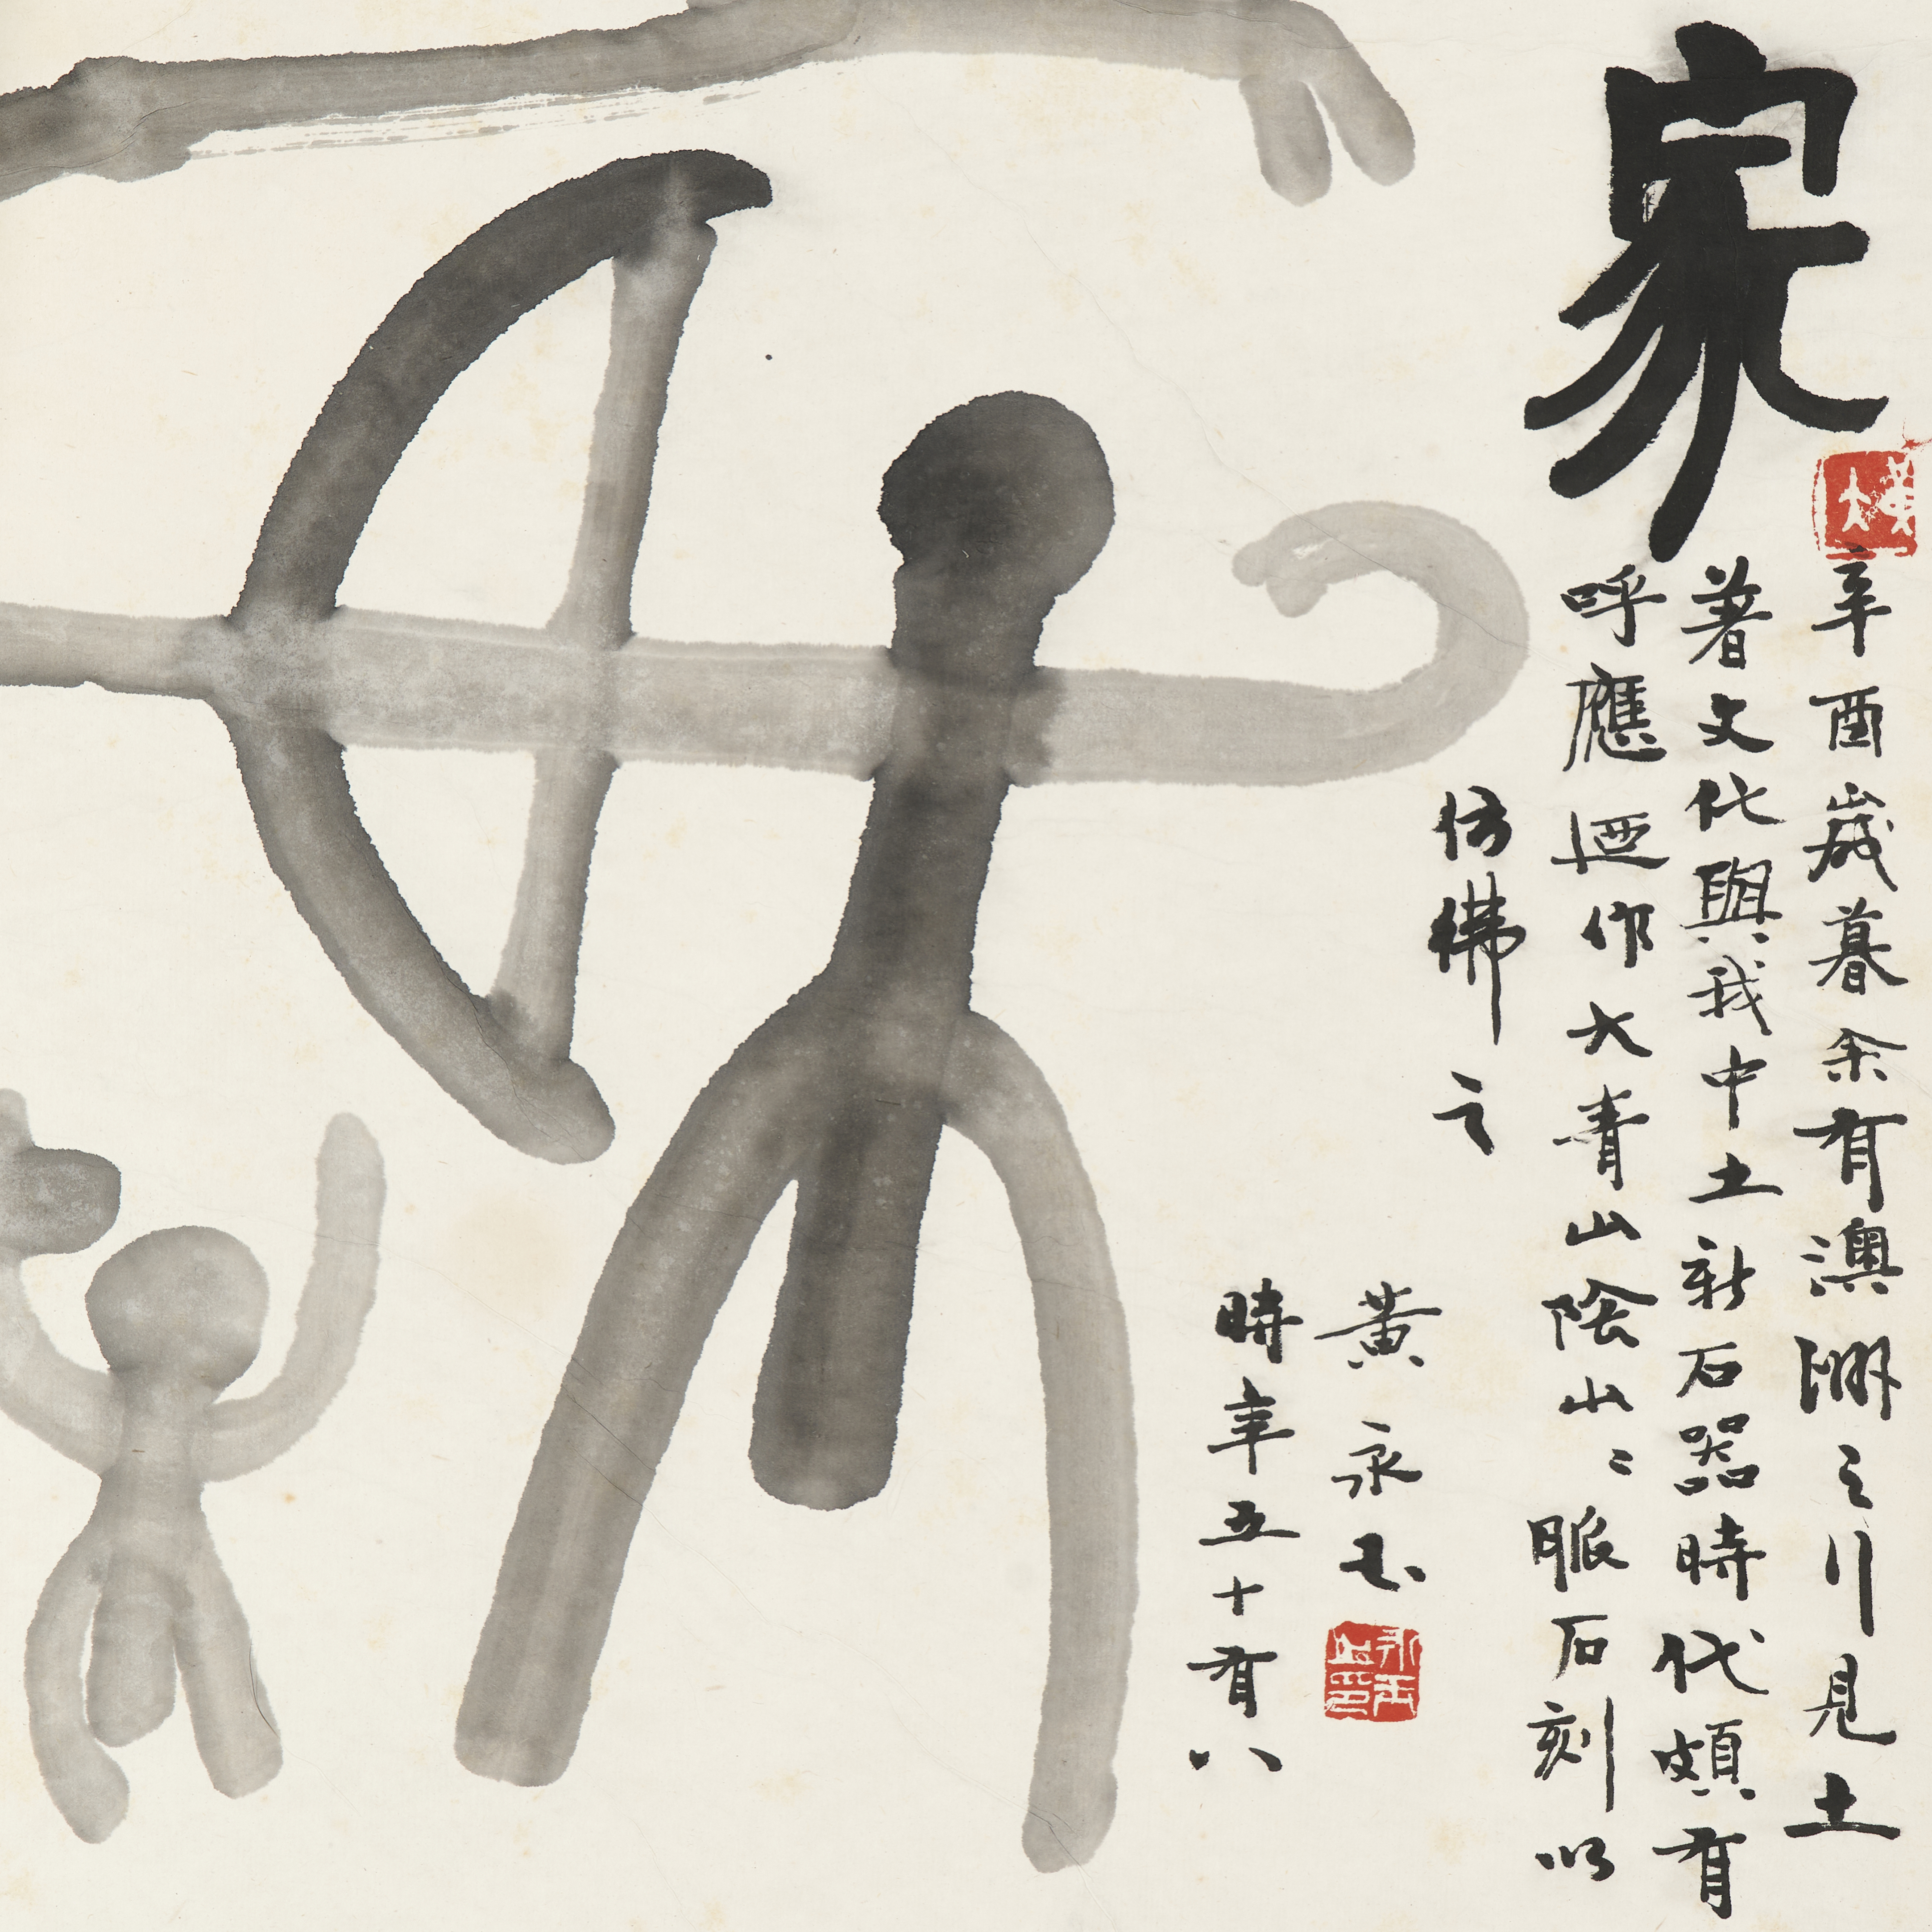 家
辛酉歲暮余有澳洲之行見土
著文化與我中土新石器時代頗有
呼應迺作大青山陰山山脈石刻以
仿彿之
黃永玉
時年五十有八
永玉